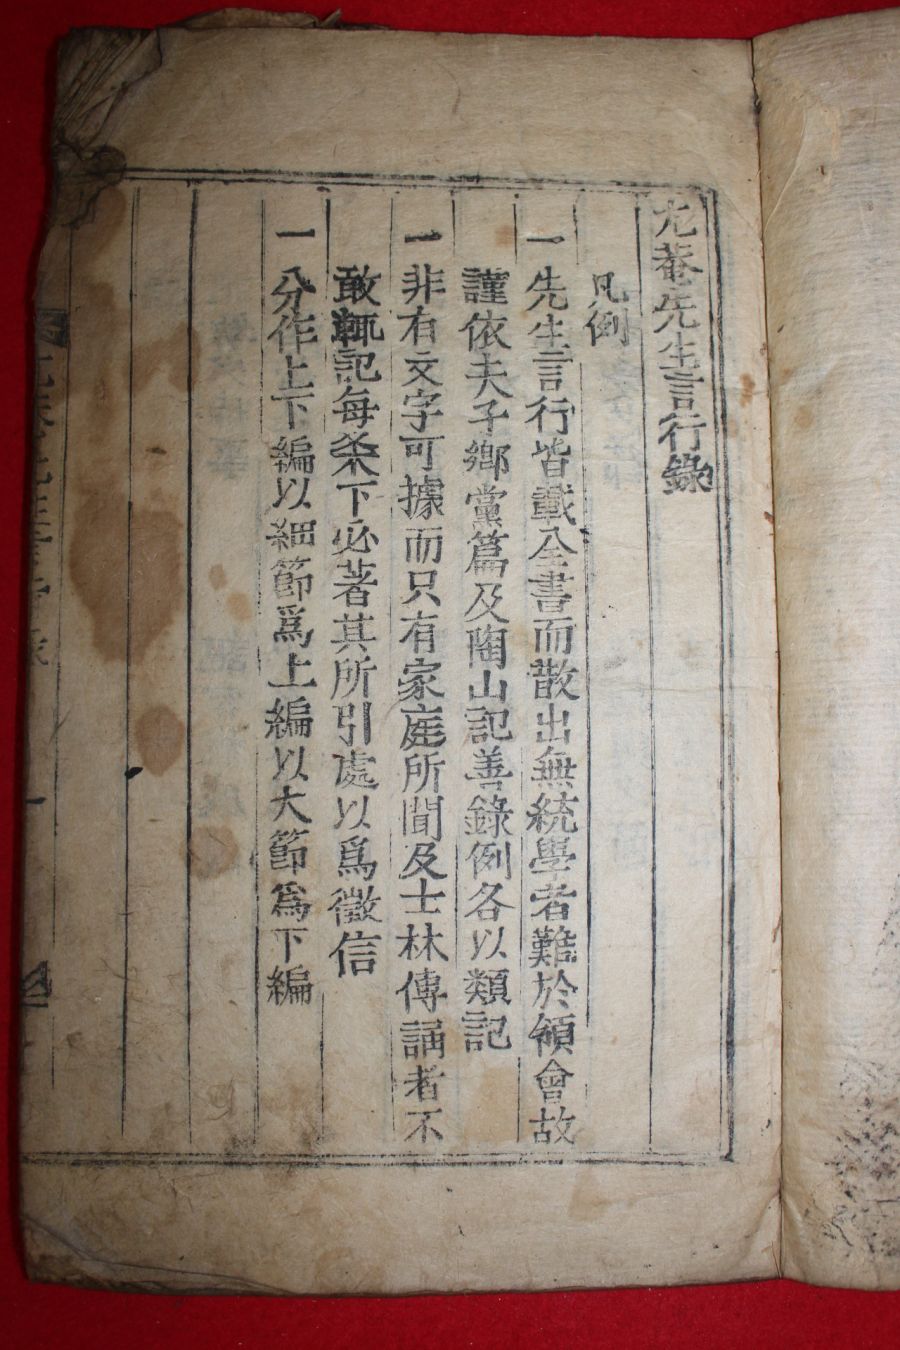 尤菴先生言行錄
凡例
一先生言行皆載全書而散出無統學者難於領會故
謹依夫子鄉黨篇及陶山記善錄例各以類記
一非有文字可據而只有家庭所聞及士林傳誦者不
敢輒記每條下必著其所引處以爲徵信
一分作上下編以細節爲上編以大節爲下編